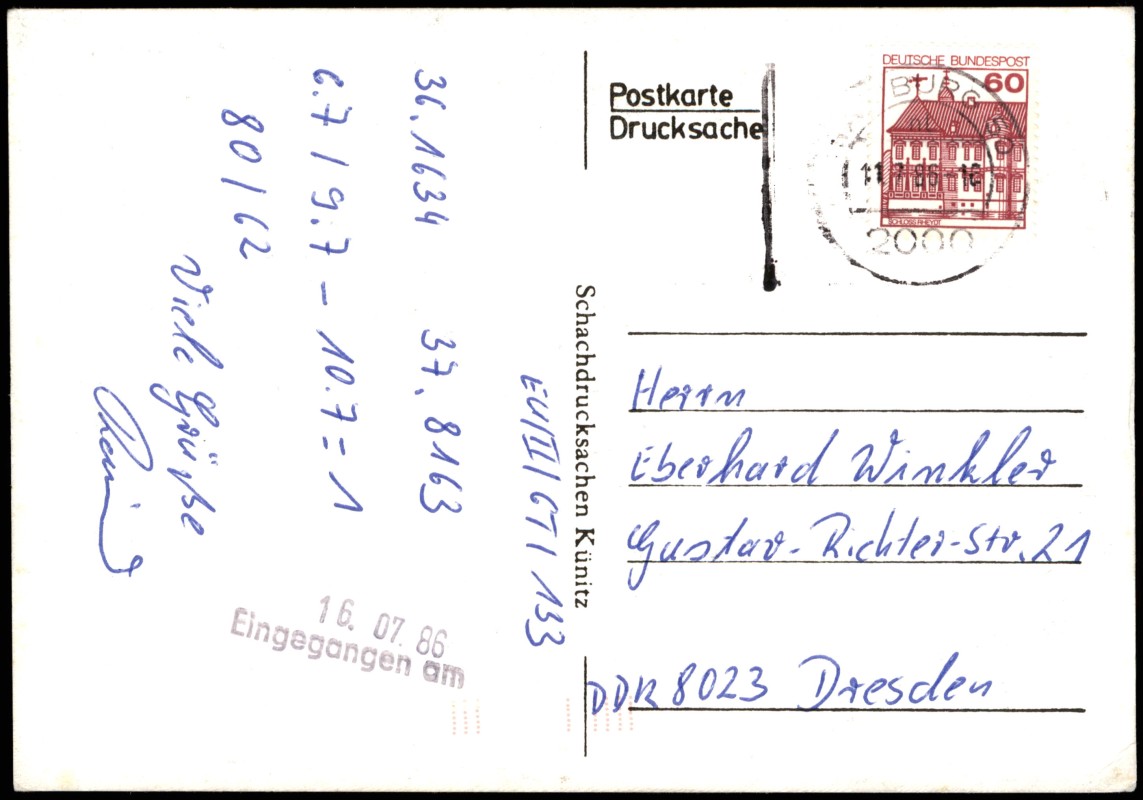 36. 1634 37. 8163
6.7 / 9.7 – 10.7 = 1
80 / 62
Viele Grüße
EU/III/GT/133
16. 07. 86
Eingegangen am
Schachdrucksachen Künitz
Postkarte
Drucksache
DEUTSCHE BUNDESPOST
60
SCHLOSS RHEYDT
BURG
2000
Herrn
Eberhard Winkler
Gustav-Richter-Str. 21
DDR 8023 Dresden